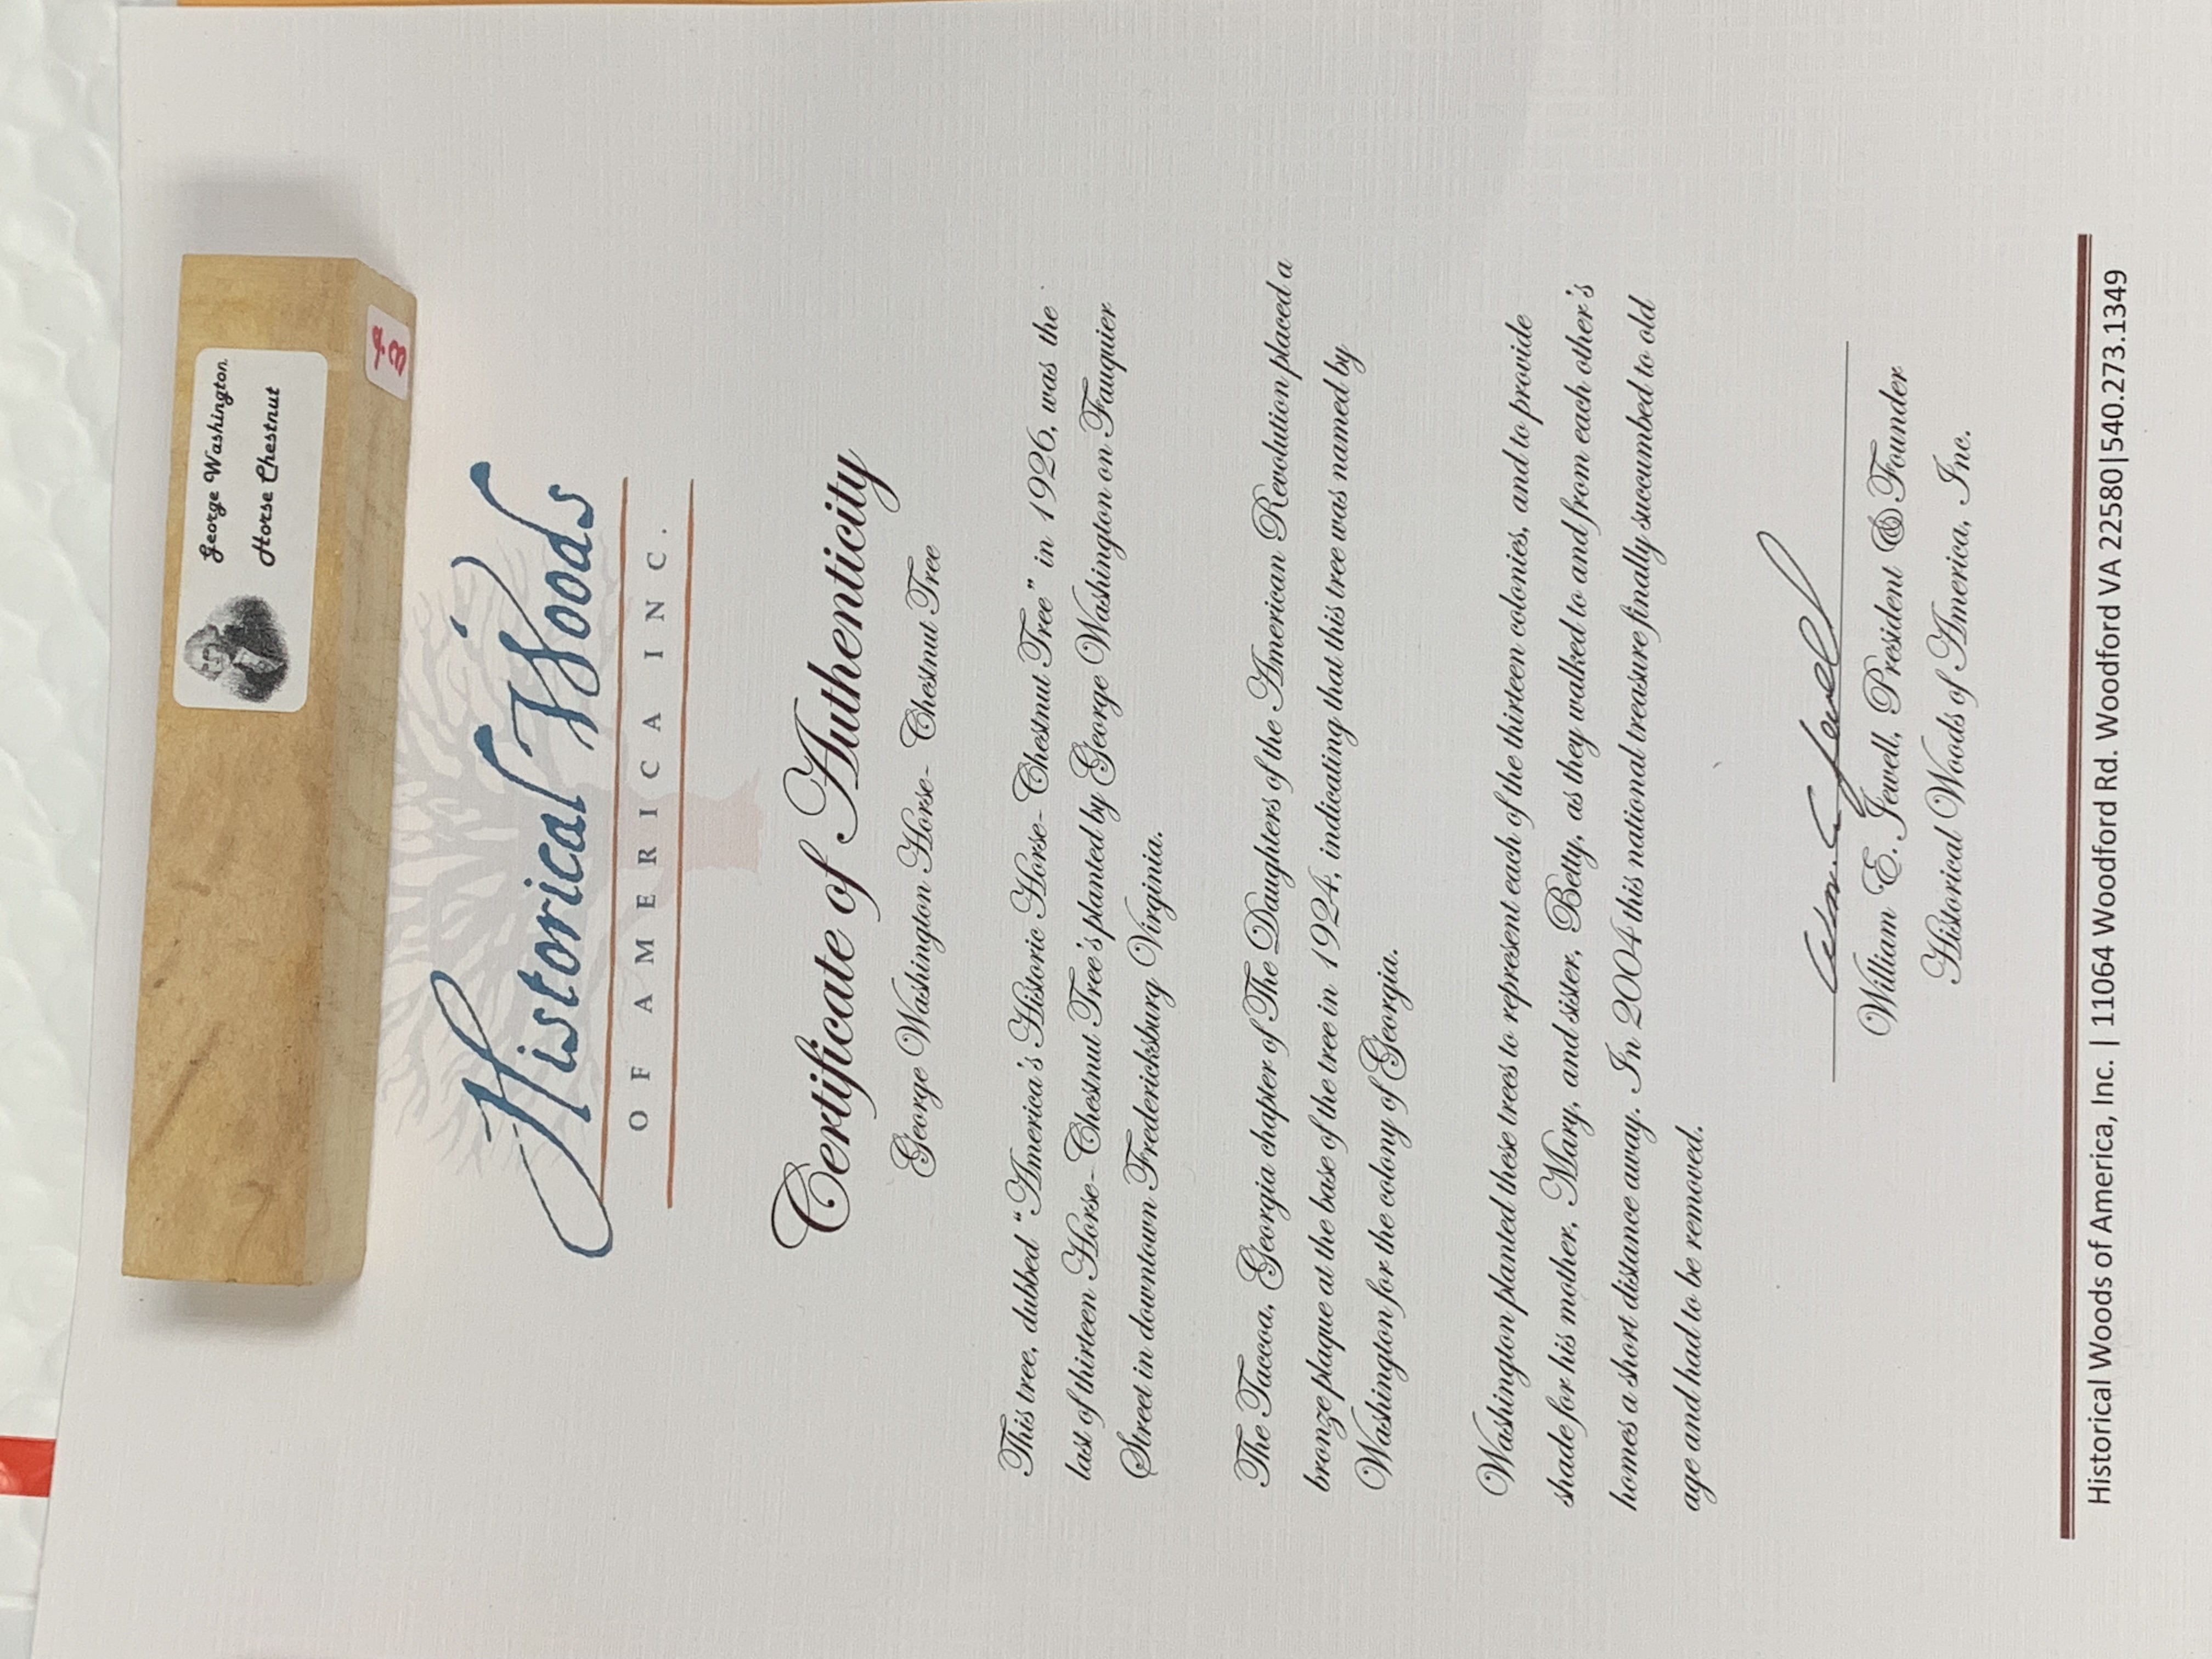 George Washington
Horse Chestnut
Historical Woods
OF AMERICA INC.
Certificate of Authenticity
George Washington Horse-Chestnut Tree
This tree, dubbed “America's Historic Horse-Chestnut Tree” in 1926, was the
last of thirteen Horse-Chestnut Tree's planted by George Washington on Fauquier
Street in downtown Fredericksburg Virginia.
The Taccoa, Georgia chapter of The Daughters of the American Revolution placed a
bronze plaque at the base of the tree in 1924, indicating that this tree was named by
Washington for the colony of Georgia.
Washington planted these trees to represent each of the thirteen colonies, and to provide
shade for his mother, Mary, and sister, Betty, as they walked to and from each other's
homes a short distance away. In 2004 this national treasure finally succumbed to old
age and had to be removed.
William E. Jewell, President & Founder
Historical Woods of America, Inc.
Historical Woods of America, Inc. | 11064 Woodford Rd. Woodford VA 22580|540.273.1349